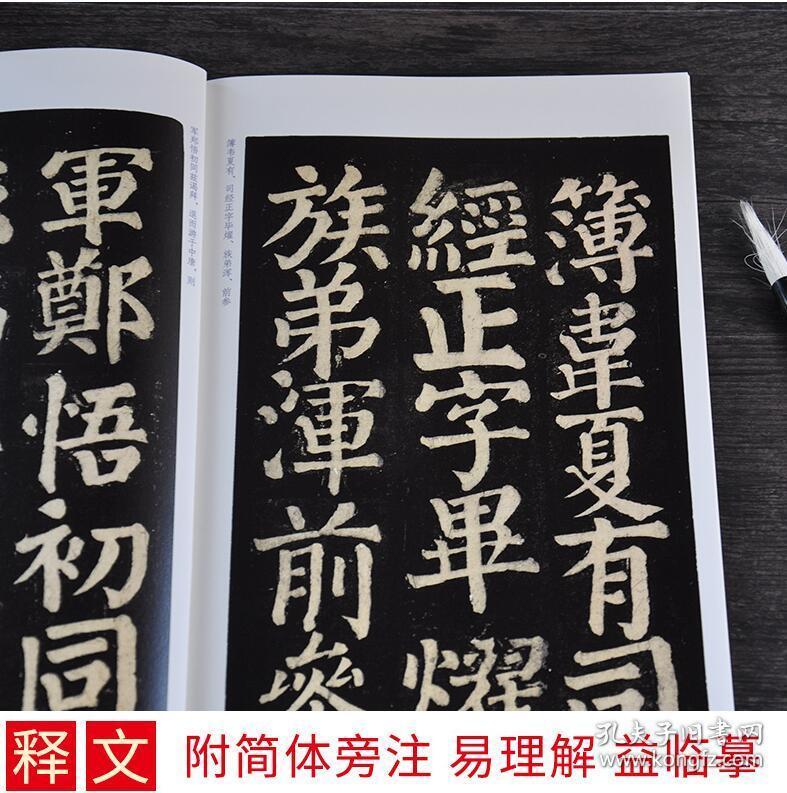 簿韋夏有司
經正字畢燿
族弟渾前參
簿韦夏有、司经正字毕燿、族弟浑、前参
軍鄭悟初同
军郑悟初同兹谒拜，退而游于中唐，则
释文 附简体旁注 易理解 益临摹
孔夫子旧书网
www.kongfz.com